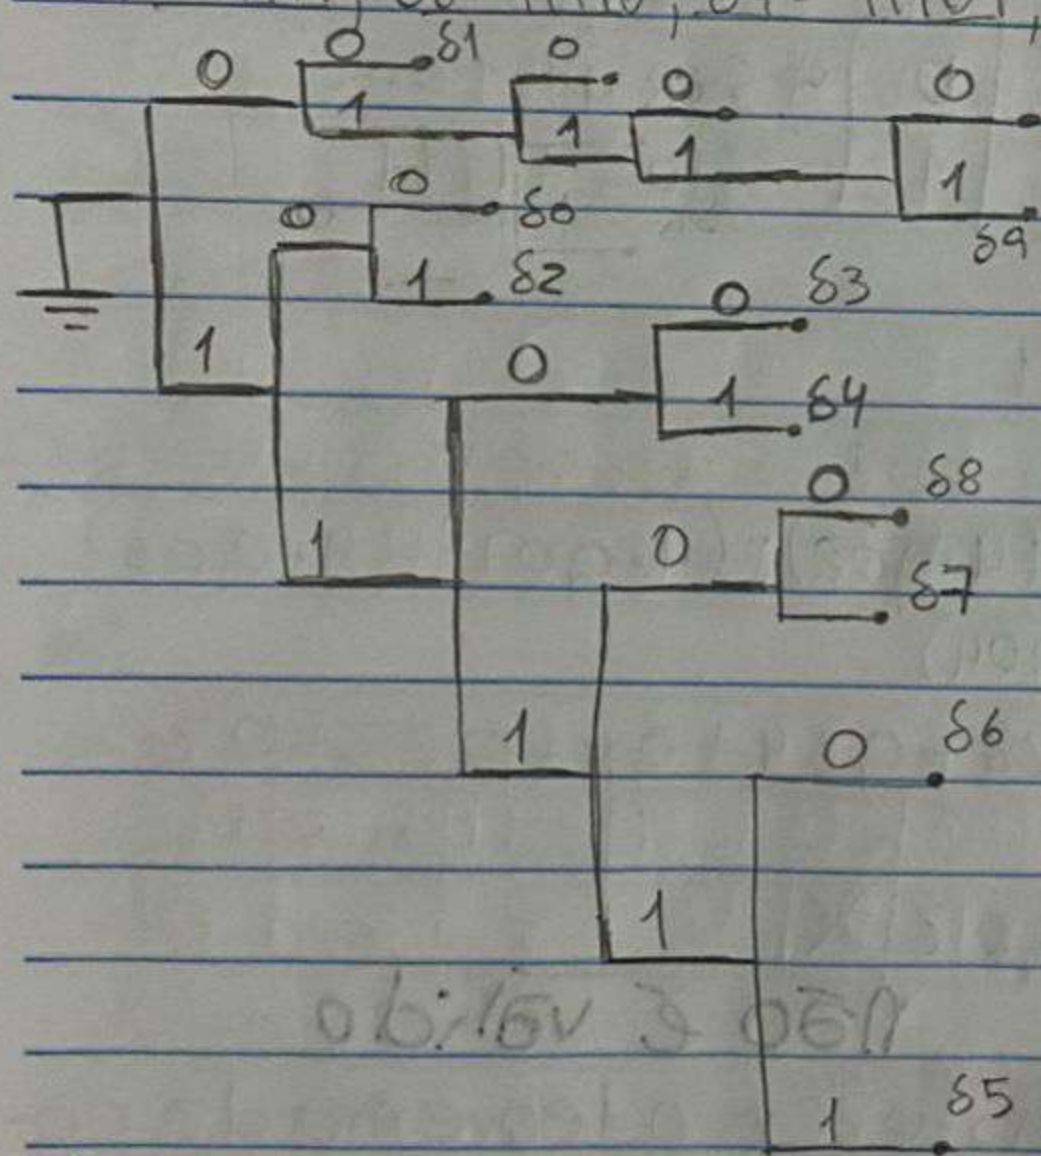 0 0 δ1 0 0 0
1 1 1 1
0 0 δ0 δ9
1 δ2 0 δ3
1 0 1 δ4
0 δ8
1 0 δ7
1 0 δ6
1
1 δ5